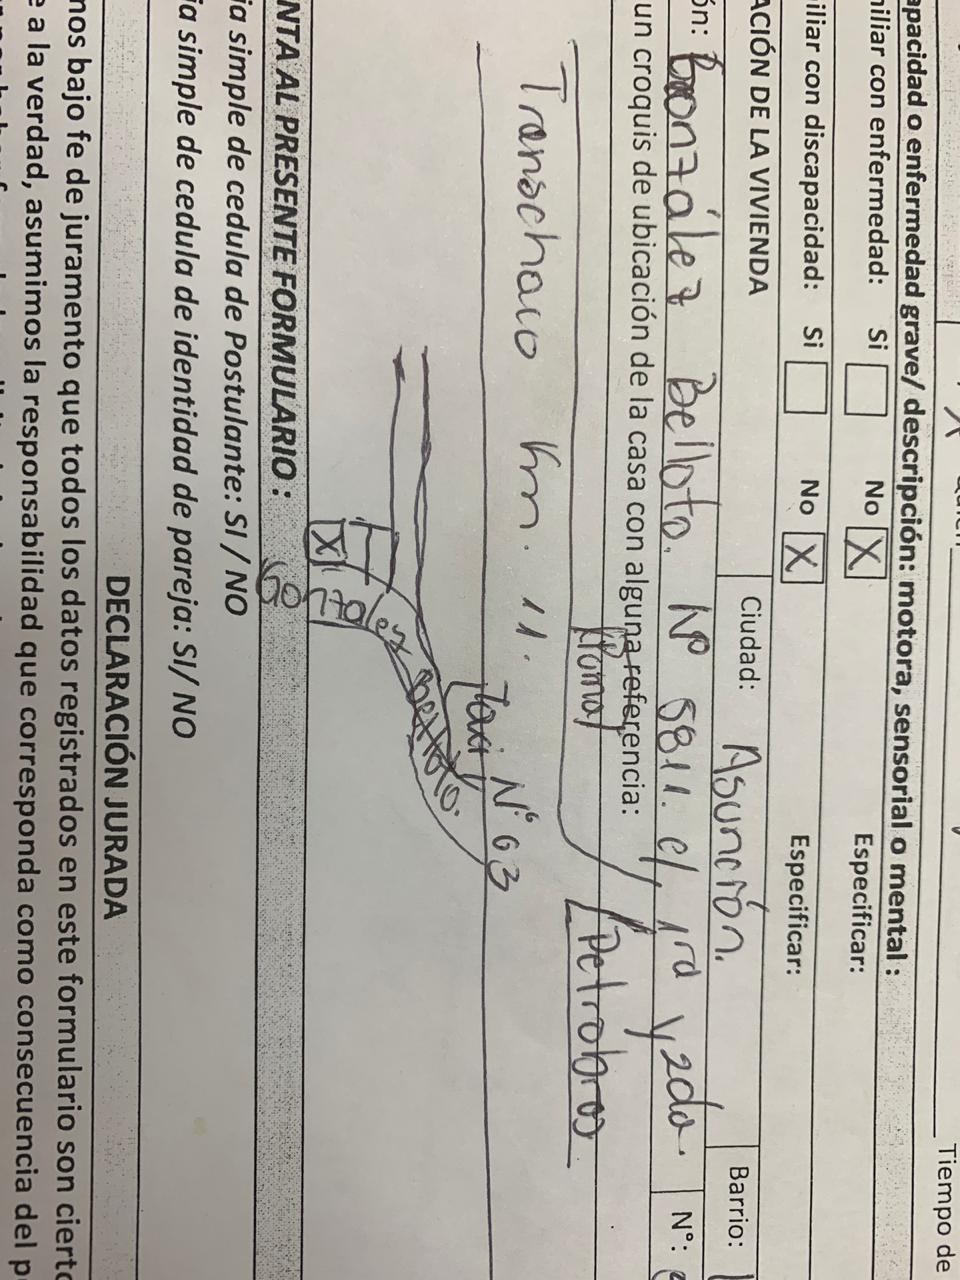 Tiempo de
apacidad o enfermedad grave/ descripción: motora, sensorial o mental :
iliar con enfermedad: Si No X Especificar:
iliar con discapacidad: Si No X Especificar:
ACIÓN DE LA VIVIENDA Ciudad: Asunción. Barrio:
ón: González Belloto. Nº 5811. c/ 1ra y 2da. N°:
un croquis de ubicación de la casa con alguna referencia:
Petrobras
Transchaco Km. 11.
Taxi N° 63
X
NTA AL PRESENTE FORMULARIO :
ia simple de cedula de Postulante: SI / NO
ia simple de cedula de identidad de pareja: SI/ NO
DECLARACIÓN JURADA
mos bajo fe de juramento que todos los datos registrados en este formulario son cierto
e a la verdad, asumimos la responsabilidad que corresponda como consecuencia del p